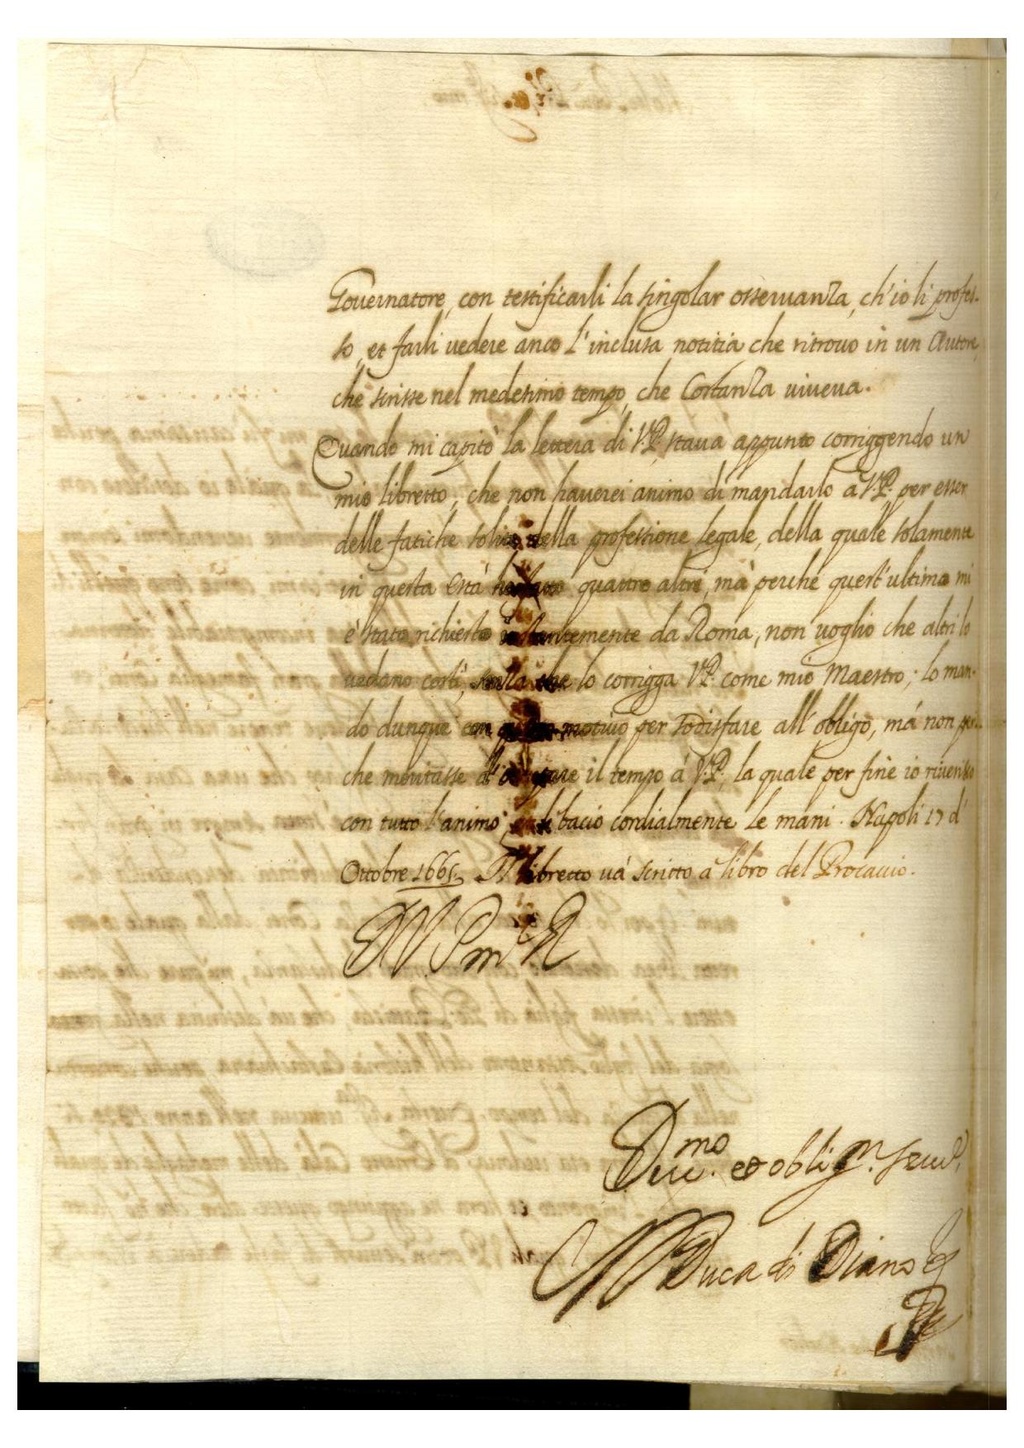 Governatore, con testificarli la singolar osservanza, ch'io li profes-
so, et farli vedere anco l'inclusa notitia che ritrovo in un Autore,
che scrisse nel medesimo tempo, che Costanza viveva.
Quando mi capitò la lettera di V.P. stava appunto corriggendo un
mio libretto, che non haverei animo di mandarlo à V.P. per esser
delle fatiche solite della professione legale, della quale solamente
in questa Està quattro altri, mà perche quest'ultima mi
è stato richiesto instantemente da Roma, non voglio che altri lo
vedano così senza che lo corrigga V.P. come mio Maestro; lo man-
do dunque con motivo per sodisfare all'obligo, mà non per-
che meritasse il tempo à V.P. la quale per fine io riverisco
con tutto l'animo, et li bacio cordialmente le mani. Napoli 17 d'
Ottobre 1665. Il libretto và scritto à libro del Procaccio.
Di V. P. m. R.
Div.mo et oblig.
Il Duca di Diano